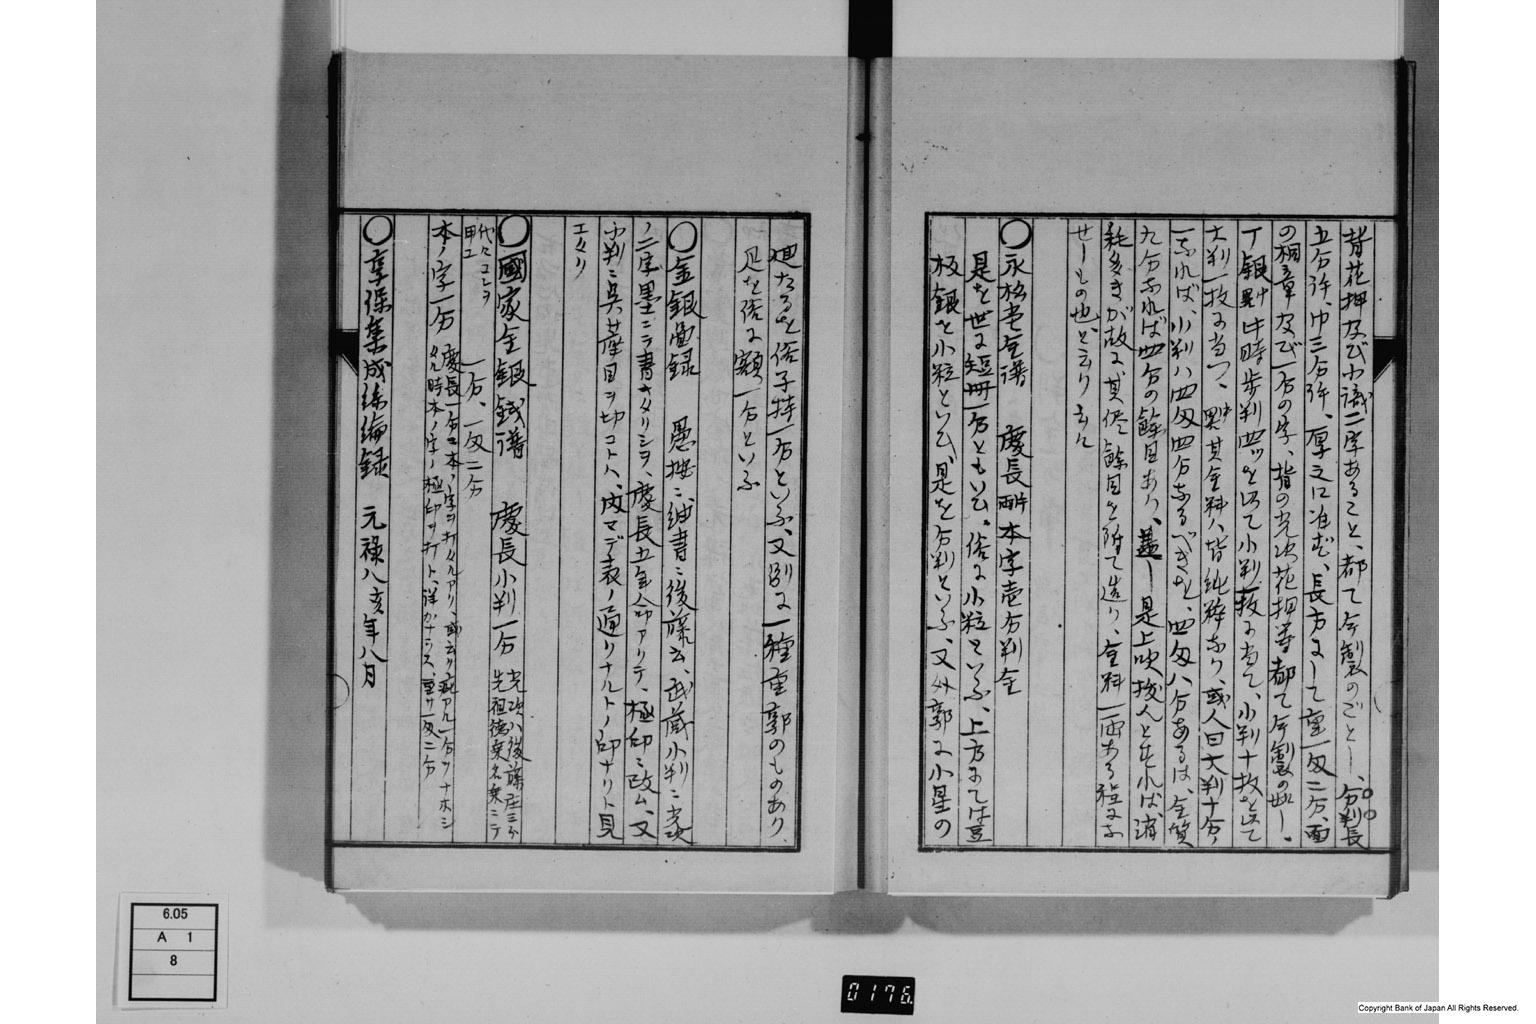 背花押及び小識二字あること、都て今製のごとし、分判長
五分許、巾三分許、厚之に准ず、長方にして重一匁二分、面
の桐章及び一分の字、背の光次花押等都て今製の如し、
丁銀 此時歩判四ツを以て小判一枚に当て、小判十枚を以て
大判一枚に当つ、其金料ハ皆純粋なり、或人曰大判十分
一なれば、小判ハ四匁四分なるべきを、四匁八分あるは、金質
九分なれば四分の餘目あり、蓋し是上吹換んとすれば、消
耗多きが故に、其侭餘目を隨て造り、金料一両ある程にな
せしもの也と云り
〇永松堂金譜 慶長 本字壱分判金
是を世に短冊一分ともいひ、俗に小粒といふ、上方にては豆
板銀を小粒といひ、是を分判といふ、又外郭に小星の
廻たるを俗子持一分といふ、又別に一種重郭のものあり、
是を俗に額一分といふ
〇金銀圖録 愚按ニ、 書ニ後藤云、武蔵小判ニ光次
ノ二字墨ニテ書ナタリシヲ、慶長五年命アリテ、極印ニ改ム、又
小判ニ呉蓙目ヲ切コトハ、 マデ表ノ通リナルトノ印ナリト見
エタリ
〇國家金銀錢譜 慶長小判一分 光次ハ後藤庄三郎
先祖徳乗名乗ニテ
代々コレヲ
用ユ
一分、一匁二分
本ノ字一分 慶長一分ニ本ノ字ヲ打タルアリ、或云リ疵アル一分ヲナホシ
タル時本ノ字ノ極印ヲ打ト、詳カナラス、重サ一匁二分
〇享保集成絲綸録 元禄八亥年八月
6.05
A 1
8
0176.
Copyright Bank of Japan All Rights Reserved.